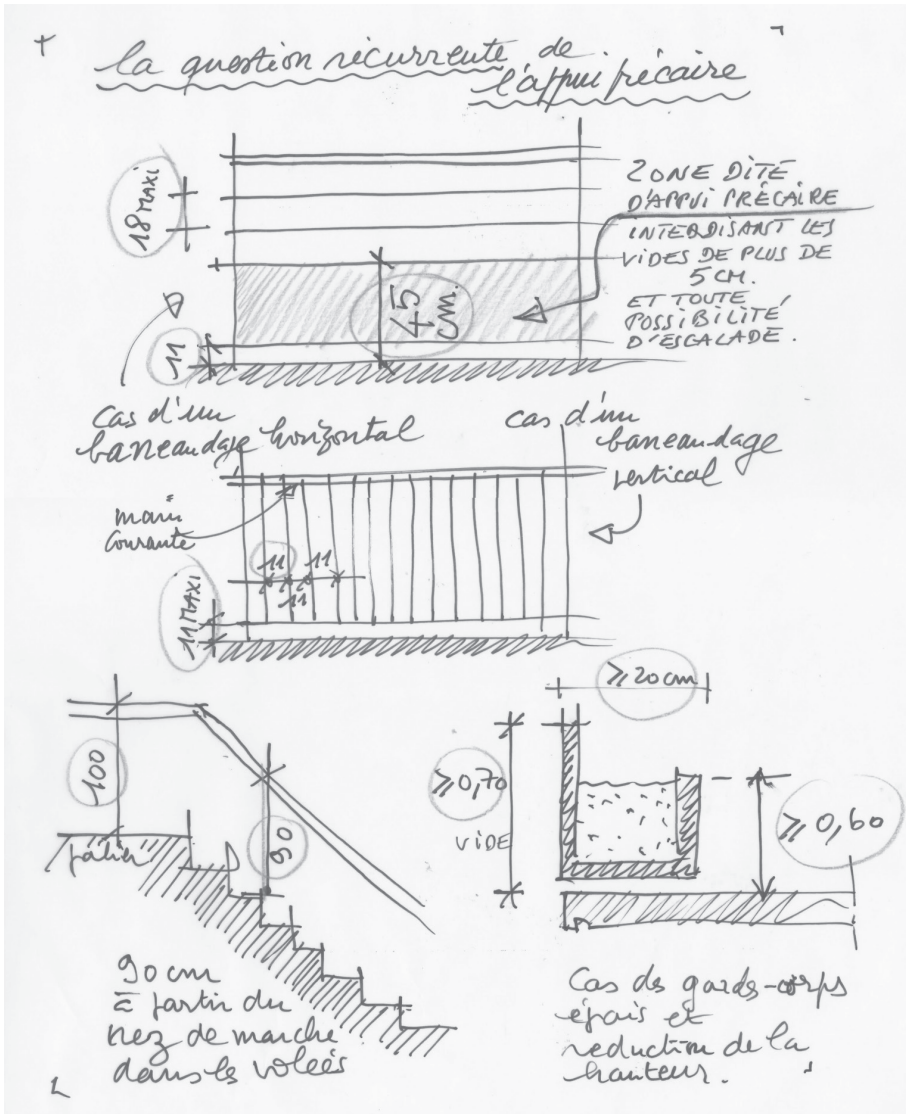 la question récurrente de
l'appui précaire
18 MAXI
ZONE DITE
D'APPUI PRÉCAIRE
INTERDISANT LES
VIDES DE PLUS DE
5 CM.
ET TOUTE
POSSIBILITÉ
D'ESCALADE.
45
cm.
11
cas d'un
barreaudage horizontal
cas d'un
barreaudage
vertical
main
courante
11
11
11
11 MAXI
≥20 cm
100
palier
90
≥0,70
VIDE
≥0,60
90 cm
à partir du
nez de marche
dans les volées
Cas des gardes-corps
épais et
reduction de la
hauteur.